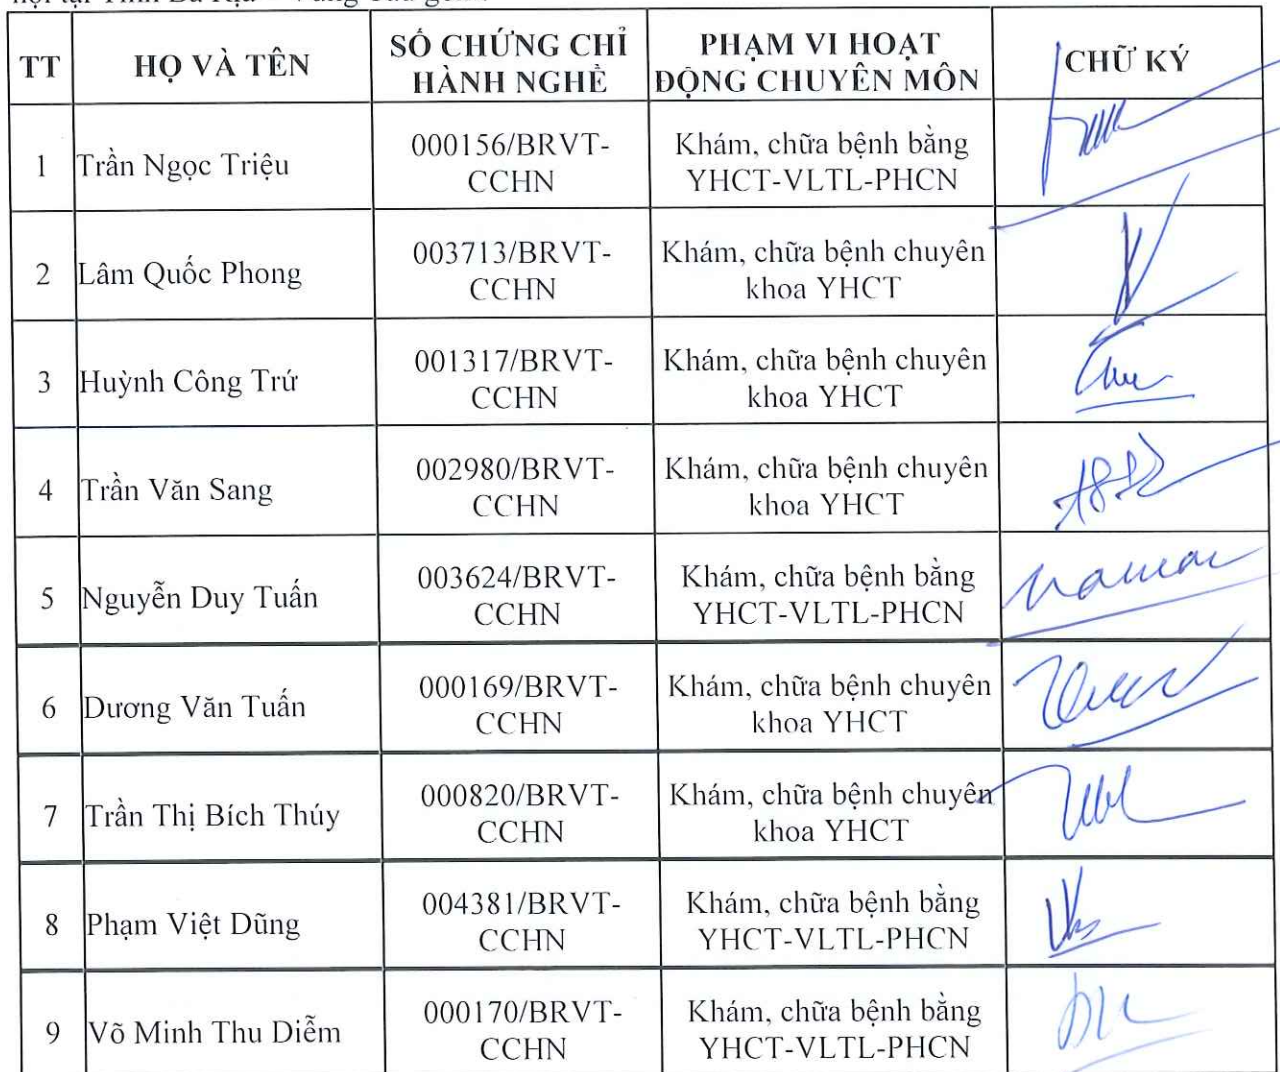 TT
HỌ VÀ TÊN
SỐ CHỨNG CHỈ
HÀNH NGHỀ
PHẠM VI HOẠT
ĐỘNG CHUYÊN MÔN
CHỮ KÝ
1
Trần Ngọc Triệu
000156/BRVT-
CCHN
Khám, chữa bệnh bằng
YHCT-VLTL-PHCN
2
Lâm Quốc Phong
003713/BRVT-
CCHN
Khám, chữa bệnh chuyên
khoa YHCT
3
Huỳnh Công Trứ
001317/BRVT-
CCHN
Khám, chữa bệnh chuyên
khoa YHCT
4
Trần Văn Sang
002980/BRVT-
CCHN
Khám, chữa bệnh chuyên
khoa YHCT
5
Nguyễn Duy Tuấn
003624/BRVT-
CCHN
Khám, chữa bệnh bằng
YHCT-VLTL-PHCN
6
Dương Văn Tuấn
000169/BRVT-
CCHN
Khám, chữa bệnh chuyên
khoa YHCT
7
Trần Thị Bích Thúy
000820/BRVT-
CCHN
Khám, chữa bệnh chuyên
khoa YHCT
8
Phạm Việt Dũng
004381/BRVT-
CCHN
Khám, chữa bệnh bằng
YHCT-VLTL-PHCN
9
Võ Minh Thu Diễm
000170/BRVT-
CCHN
Khám, chữa bệnh bằng
YHCT-VLTL-PHCN